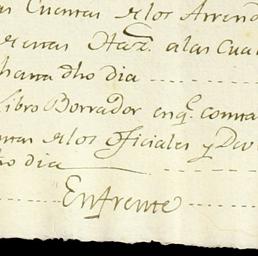 as Cuentas de los Arrend
de rentas Haz.ª a las Cual
hasta dho dia
Libro Borrador en q.e consta
ntas de los oficiales y Deu
ho dia
Enfrente